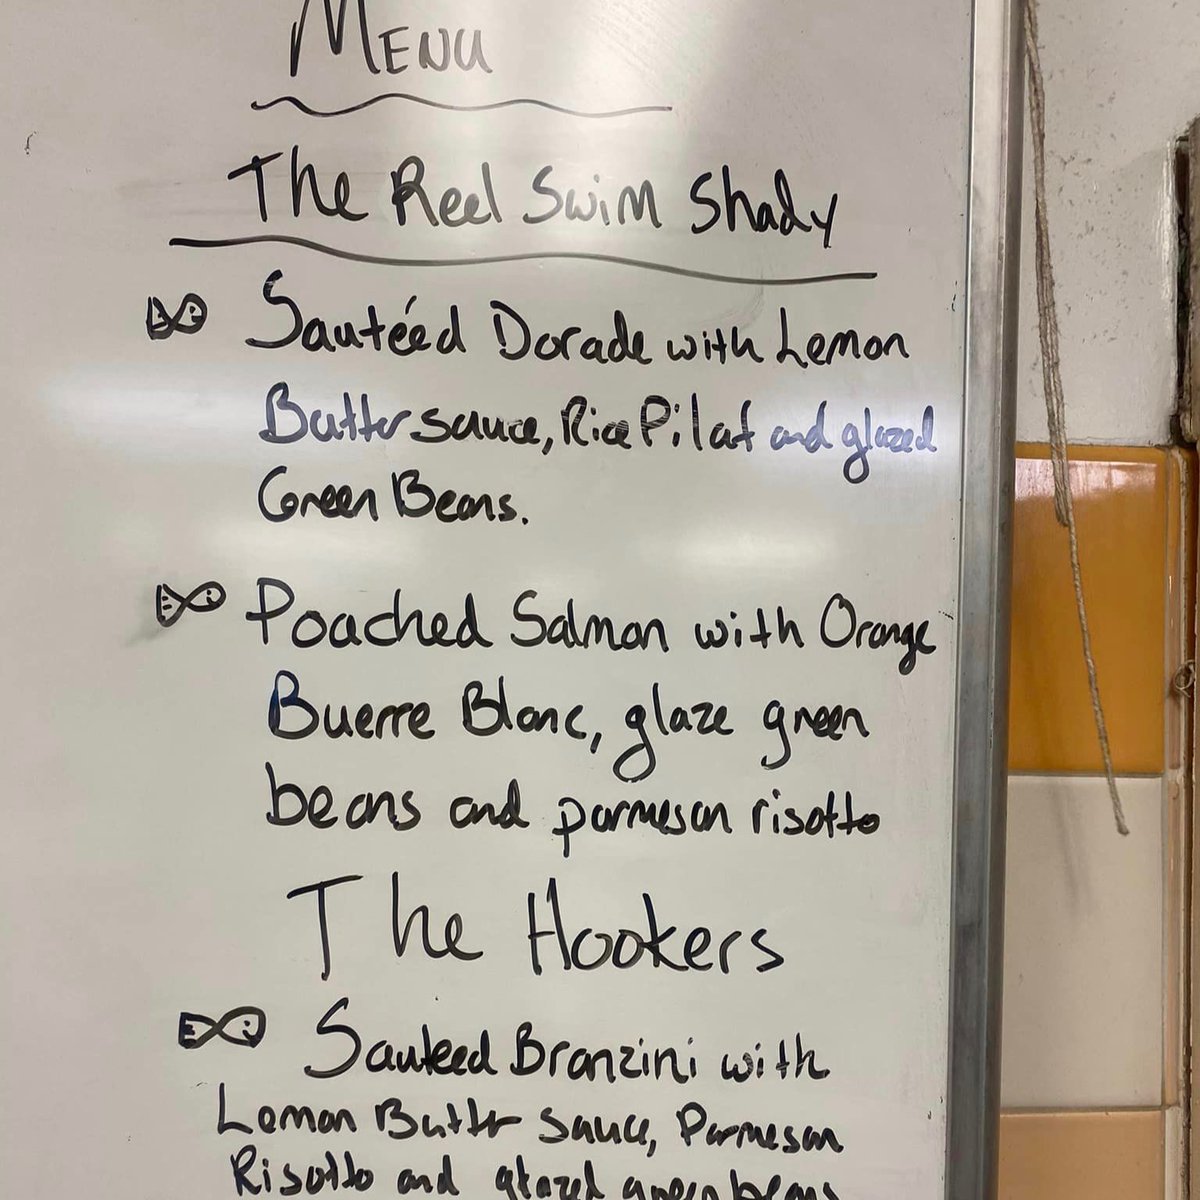 MENU
The Reel Swim Shady
Sautéed Dorade with Lemon
Butter sauce, Rice Pilaf and glazed
Green Beans.
Poached Salmon with Orange
Buerre Blanc, glaze green
beans and parmesan risotto
The Hookers
Sauteed Branzini with
Lemon Butter Sauce, Parmesan
Risotto and glazed green beans